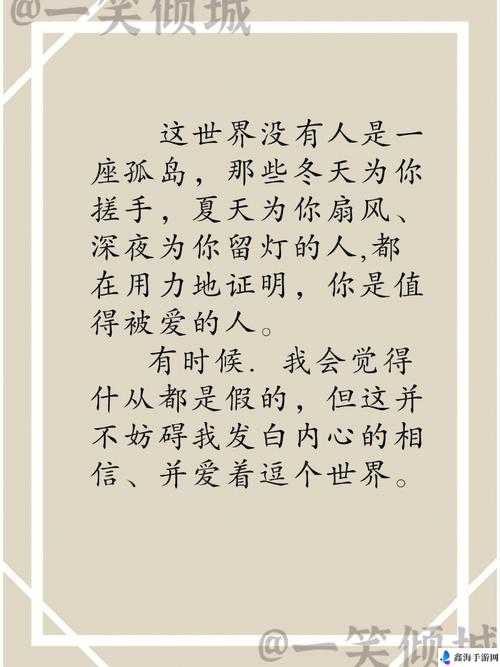 @一笑倾城
这世界没有人是一
座孤岛，那些冬天为你
搓手，夏天为你扇风、
深夜为你留灯的人,都
在用力地证明，你是值
得被爱的人。
有时候. 我会觉得
什从都是假的，但这并
不妨碍我发白内心的相
信、并爱着逗个世界。
@一笑倾城
鑫海手游网